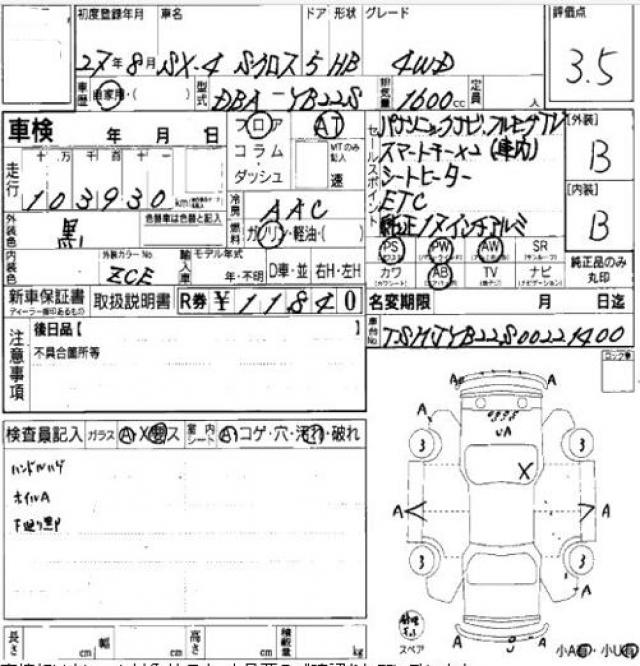 初度登録年月 車名 ドア 形状 グレード 評価点
27年8月 SX-4 Sクロス 5 HB 4WD 3.5
車歴 自家用・( ) 型式 DBA-YB22S 排気量 1600cc 定員 人
車検 年 月 日
フロア AT
コラム・ MTのみ記入
ダッシュ 速
セールスポイント
パナソニックナビ・フルセグTV
スマートキーx2(車内)
シートヒーター
ETC
純正17インチアルミ
[外装]
B
[内装]
B
純正品のみ丸印
走行 十 万 千 百 十 一
103930 km
冷房 AAC
燃料 ガソリン・軽油・( )
外装色 黒 色替車は色替と記入
内装色 外装カラーNo. ZCE
輸入車 モデル年式 年・不明 D車・並 右H・左H
PS PW AW SR
カワ AB TV ナビ
新車保証書 取扱説明書 R券 ¥11840
ディーラー捺印あるもの
名変期限 月 日迄
車台No TSMJYB22S00221400
注意事項
後日品【 】
不具合箇所等
検査員記入 ガラス A・X・ス 室内シート A・コゲ・穴・汚れ・破れ
ハンドルハゲ
ホイルA
下廻り
A A
A
UA
3 3
X
A A
3 3
A
スペア
A A
小A 小U
長さ cm 幅 cm 高さ cm 積載量 kg